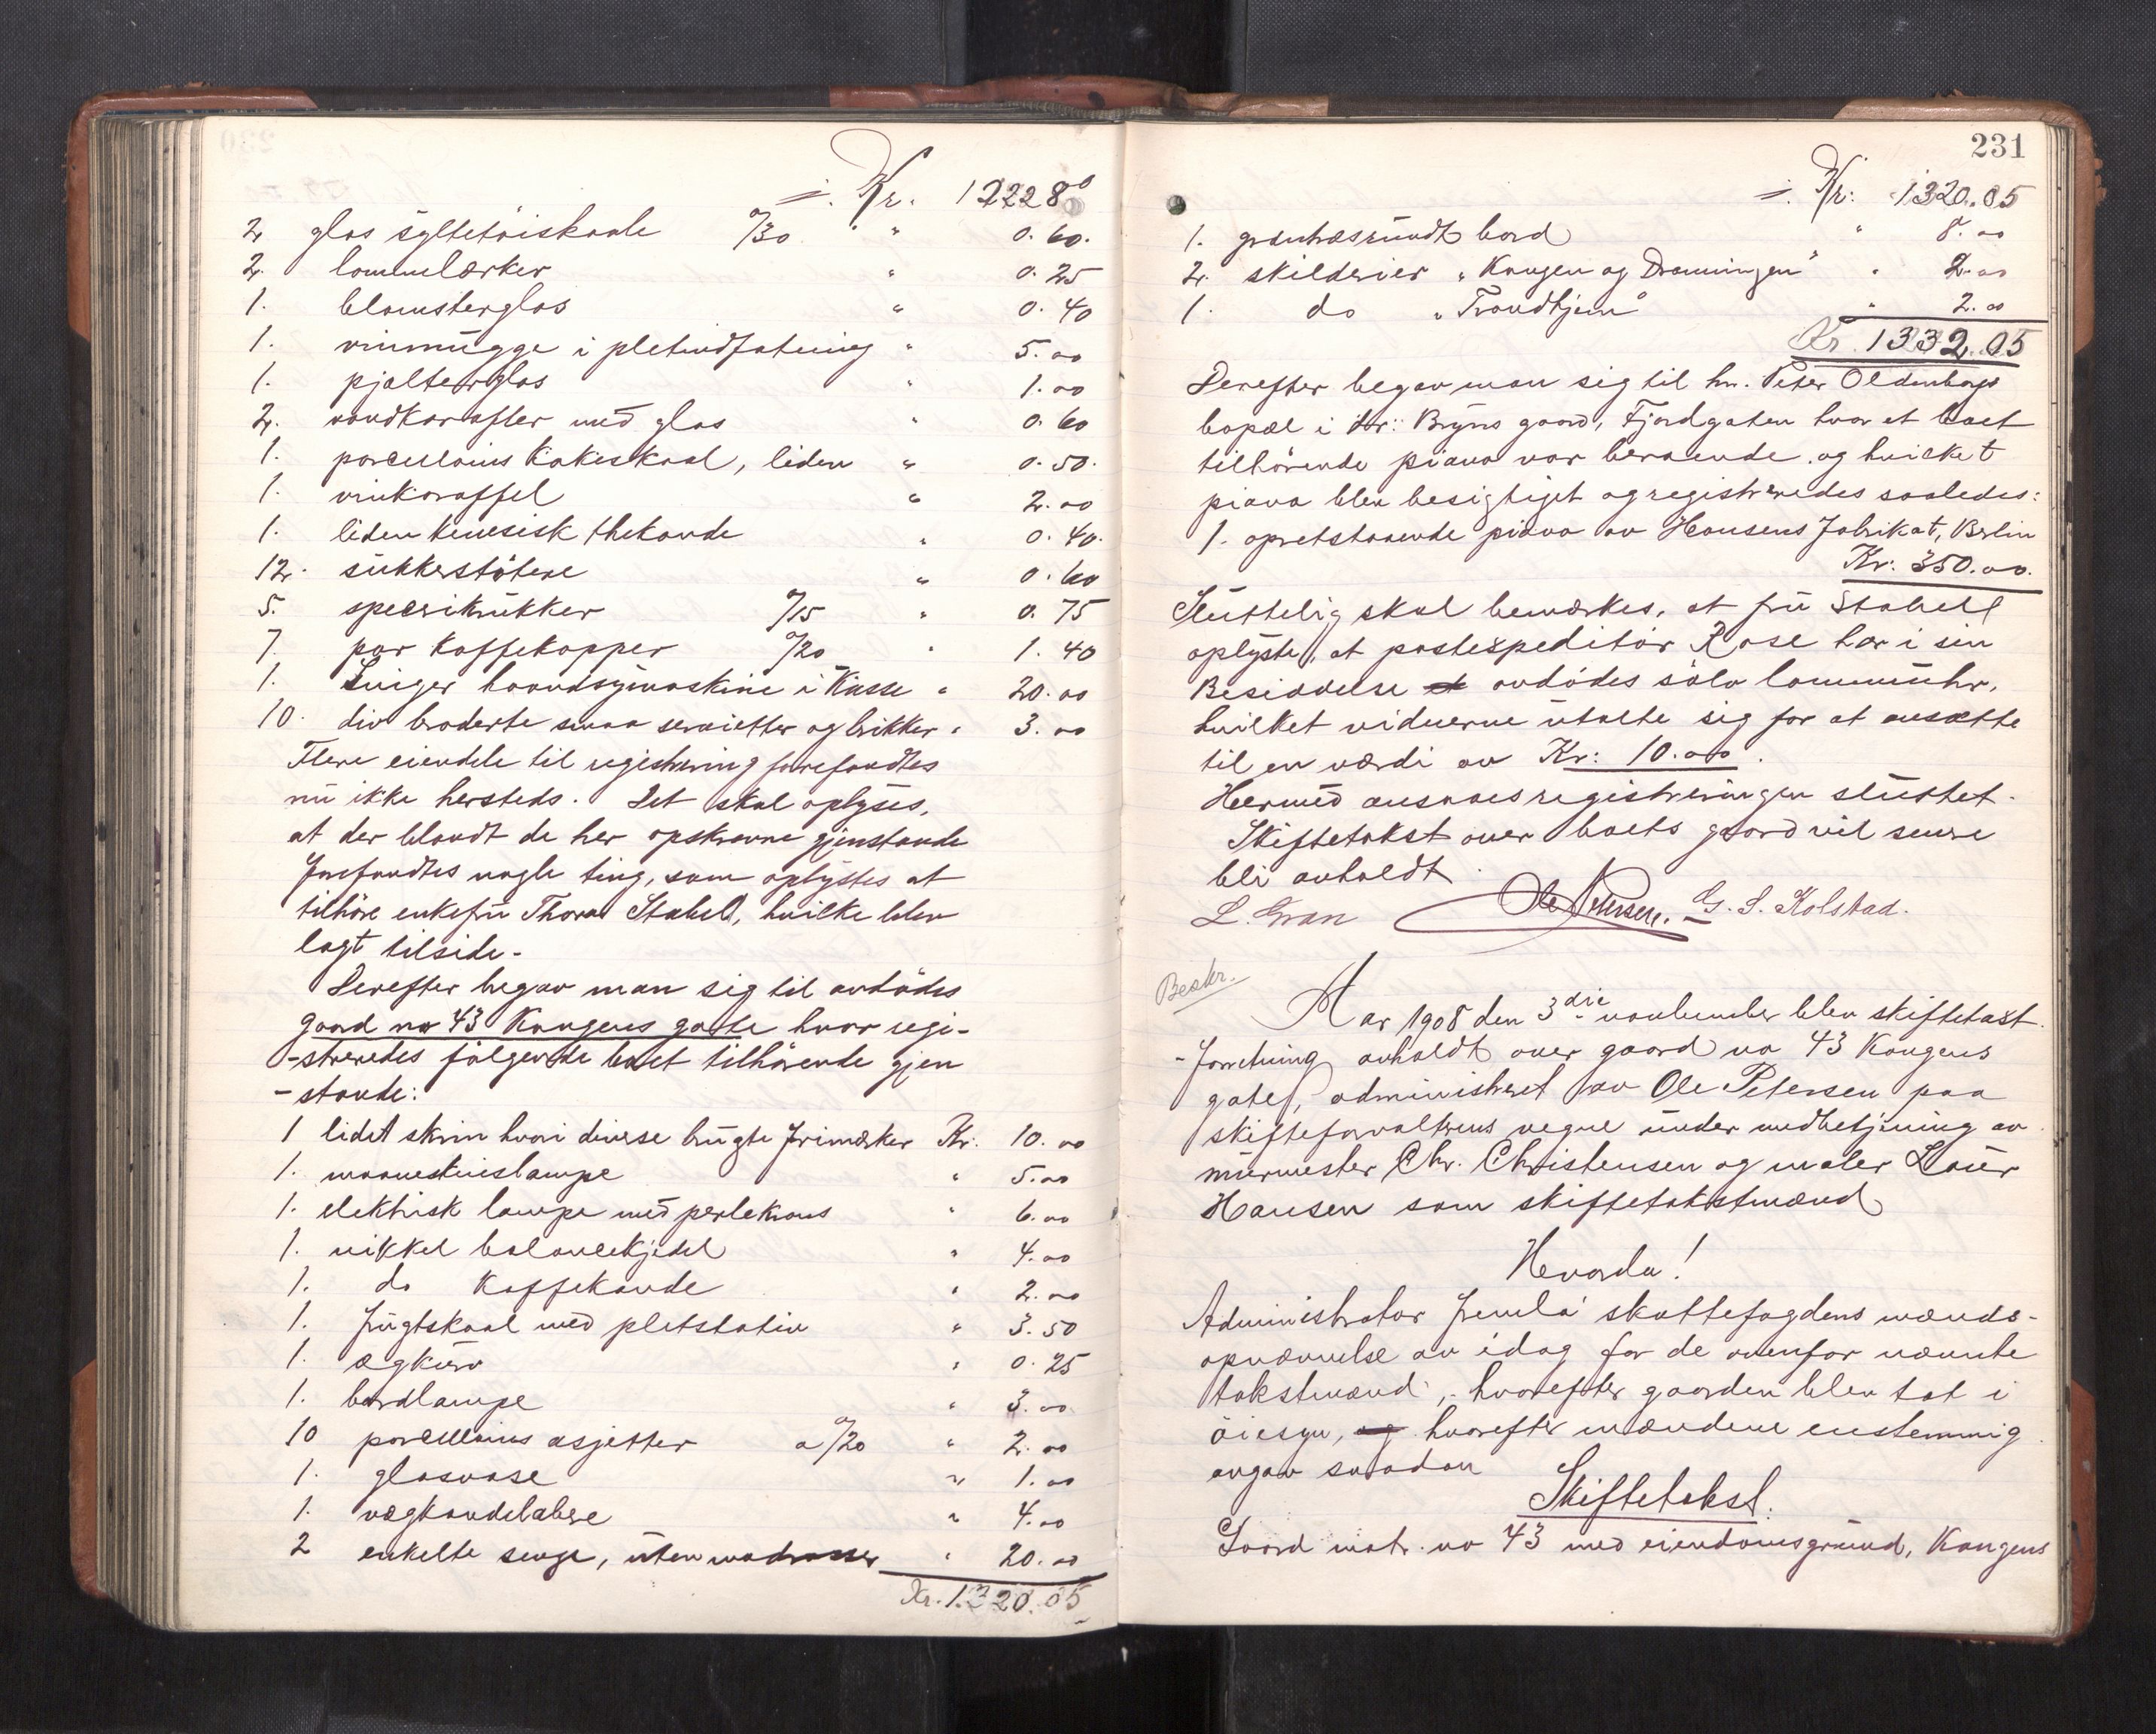 ÷. Kr. 1222 80
2 glas syltetöiskaale a/30 " 0.60.
2. lommelærker " 0.25
1. blomsterglas " 0.40
1. vinmugge i pletindfatning " 5.00
1. pjalterglas " 1.00
2. vandkarafler med glas " 0.60
1. porcellains kakeskaal, liden " 0.50.
1. vinkaraffel " 2.00
1. liden kinesisk thekande " 0.40.
12. sukkerstötere " 0.60
5. specerikrukker a/15 " 0.75
7. par kaffekopper a/20 " 1.40
1. Singer haandsymaskine i Kasse " 20.00
10. div broderte smaa servietter og brikker " 3.00
Flere eiendele til registrering forefandtes
nu ikke hersteds. Det skal oplyses,
at der blandt de her opskrevne gjenstande
forefandtes nogle ting, som oplystes at
tilhöre enkefru Thora Stabell, hvilke blev
lagt tilside.
Derefter begav man sig til avdödes
gaard no 43 Kongens gate hvor regi-
-streredes fölgende boet tilhörende gjen
-stande:
1 lidet skrin hvori diverse brugte frimærker Kr. 10.00
1. maaneskinslampe " 5.00
1. elektrisk lampe med perlekrans " 6.00
1. nikkel balancekjedel " 4.00
1. do kaffekande " 2.00
1. frugtskaal med pletstativ " 3.50
1. ægkurv " 0.25
1. bordlampe " 3.00
10 porcellains asjetter a/20 " 2.00
1. glasvase " 1.00
1. vægkandelabre " 4.00
2 enkelte senge, uten madrasser " 20.00
Kr. 1320.05
231
÷. Kr: 1320.05
1. rundt bord " 8.00
2. skilderier "Kongen og Dronningen" " 2.00
1. do "Trondhjem" " 2.00
Kr. 1332.05
Derefter begav man sig til hr. Peter Oldenborgs
bopæl i Bryns gaard, Fjordgaten hvor et boet
tilhörende piano var beroende og hvilket
piano blev besigtiget og registreredes saaledes:
1. opretstaaende piano av Hansens Fabrikat, Berlin
Kr: 350.00.
Sluttelig skal bemærkes, at fru Stabell
oplyste, at postexpeditör Rose har i sin
Besiddelse et avdödes sölv lommeuhr,
hvilket vidnerne utalte sig for at ansætte
til en værdi av Kr: 10.00.
Hermed ansaaes registreringen sluttet.
Skiftetakst over boets gaard vil senere
bli avholdt.
L. Gran Ole Petersen. G. S. Kolstad.
Beskr.
Aar 1908 den 3die november blev skiftetaxt
-forretning avholdt over gaard no 43 Kongens
gate, administreret av Ole Petersen paa
skifteforvalterens vegne under medbetjening av
murmester Chr. Christensen og maler Laur
Hansen som skiftetakstmænd
Hvorda!
Administrator fremla' skattefogdens mænds-
opnævnelse av idag for de ovenfor nævnte
takstmænd, hvorefter gaarden blev tat i
öiesyn, og hvorefter mændene enstemmig
avgav saadan
Skiftetakst.
Gaard matr. no 43 med eiendomsgrund, Kongens